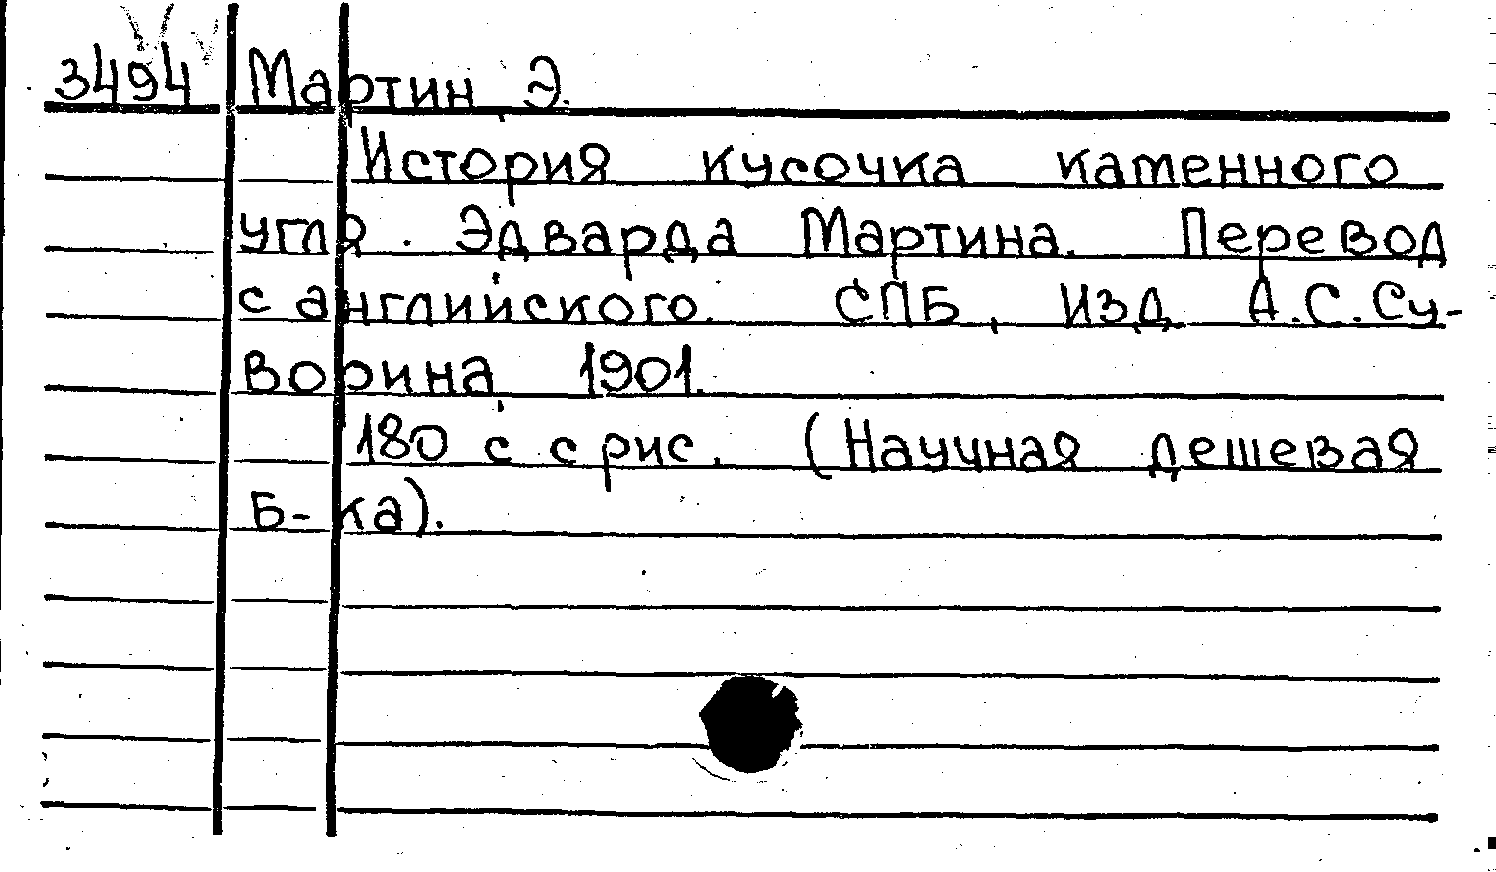 3494 Мартин Э.
История кусочка каменного
угля. Эдварда Мартина. Перевод
с английского. СПБ, изд А.С.Су-
ворина 1901.
180 с с рис. (Научная дешевая
Б-ка).